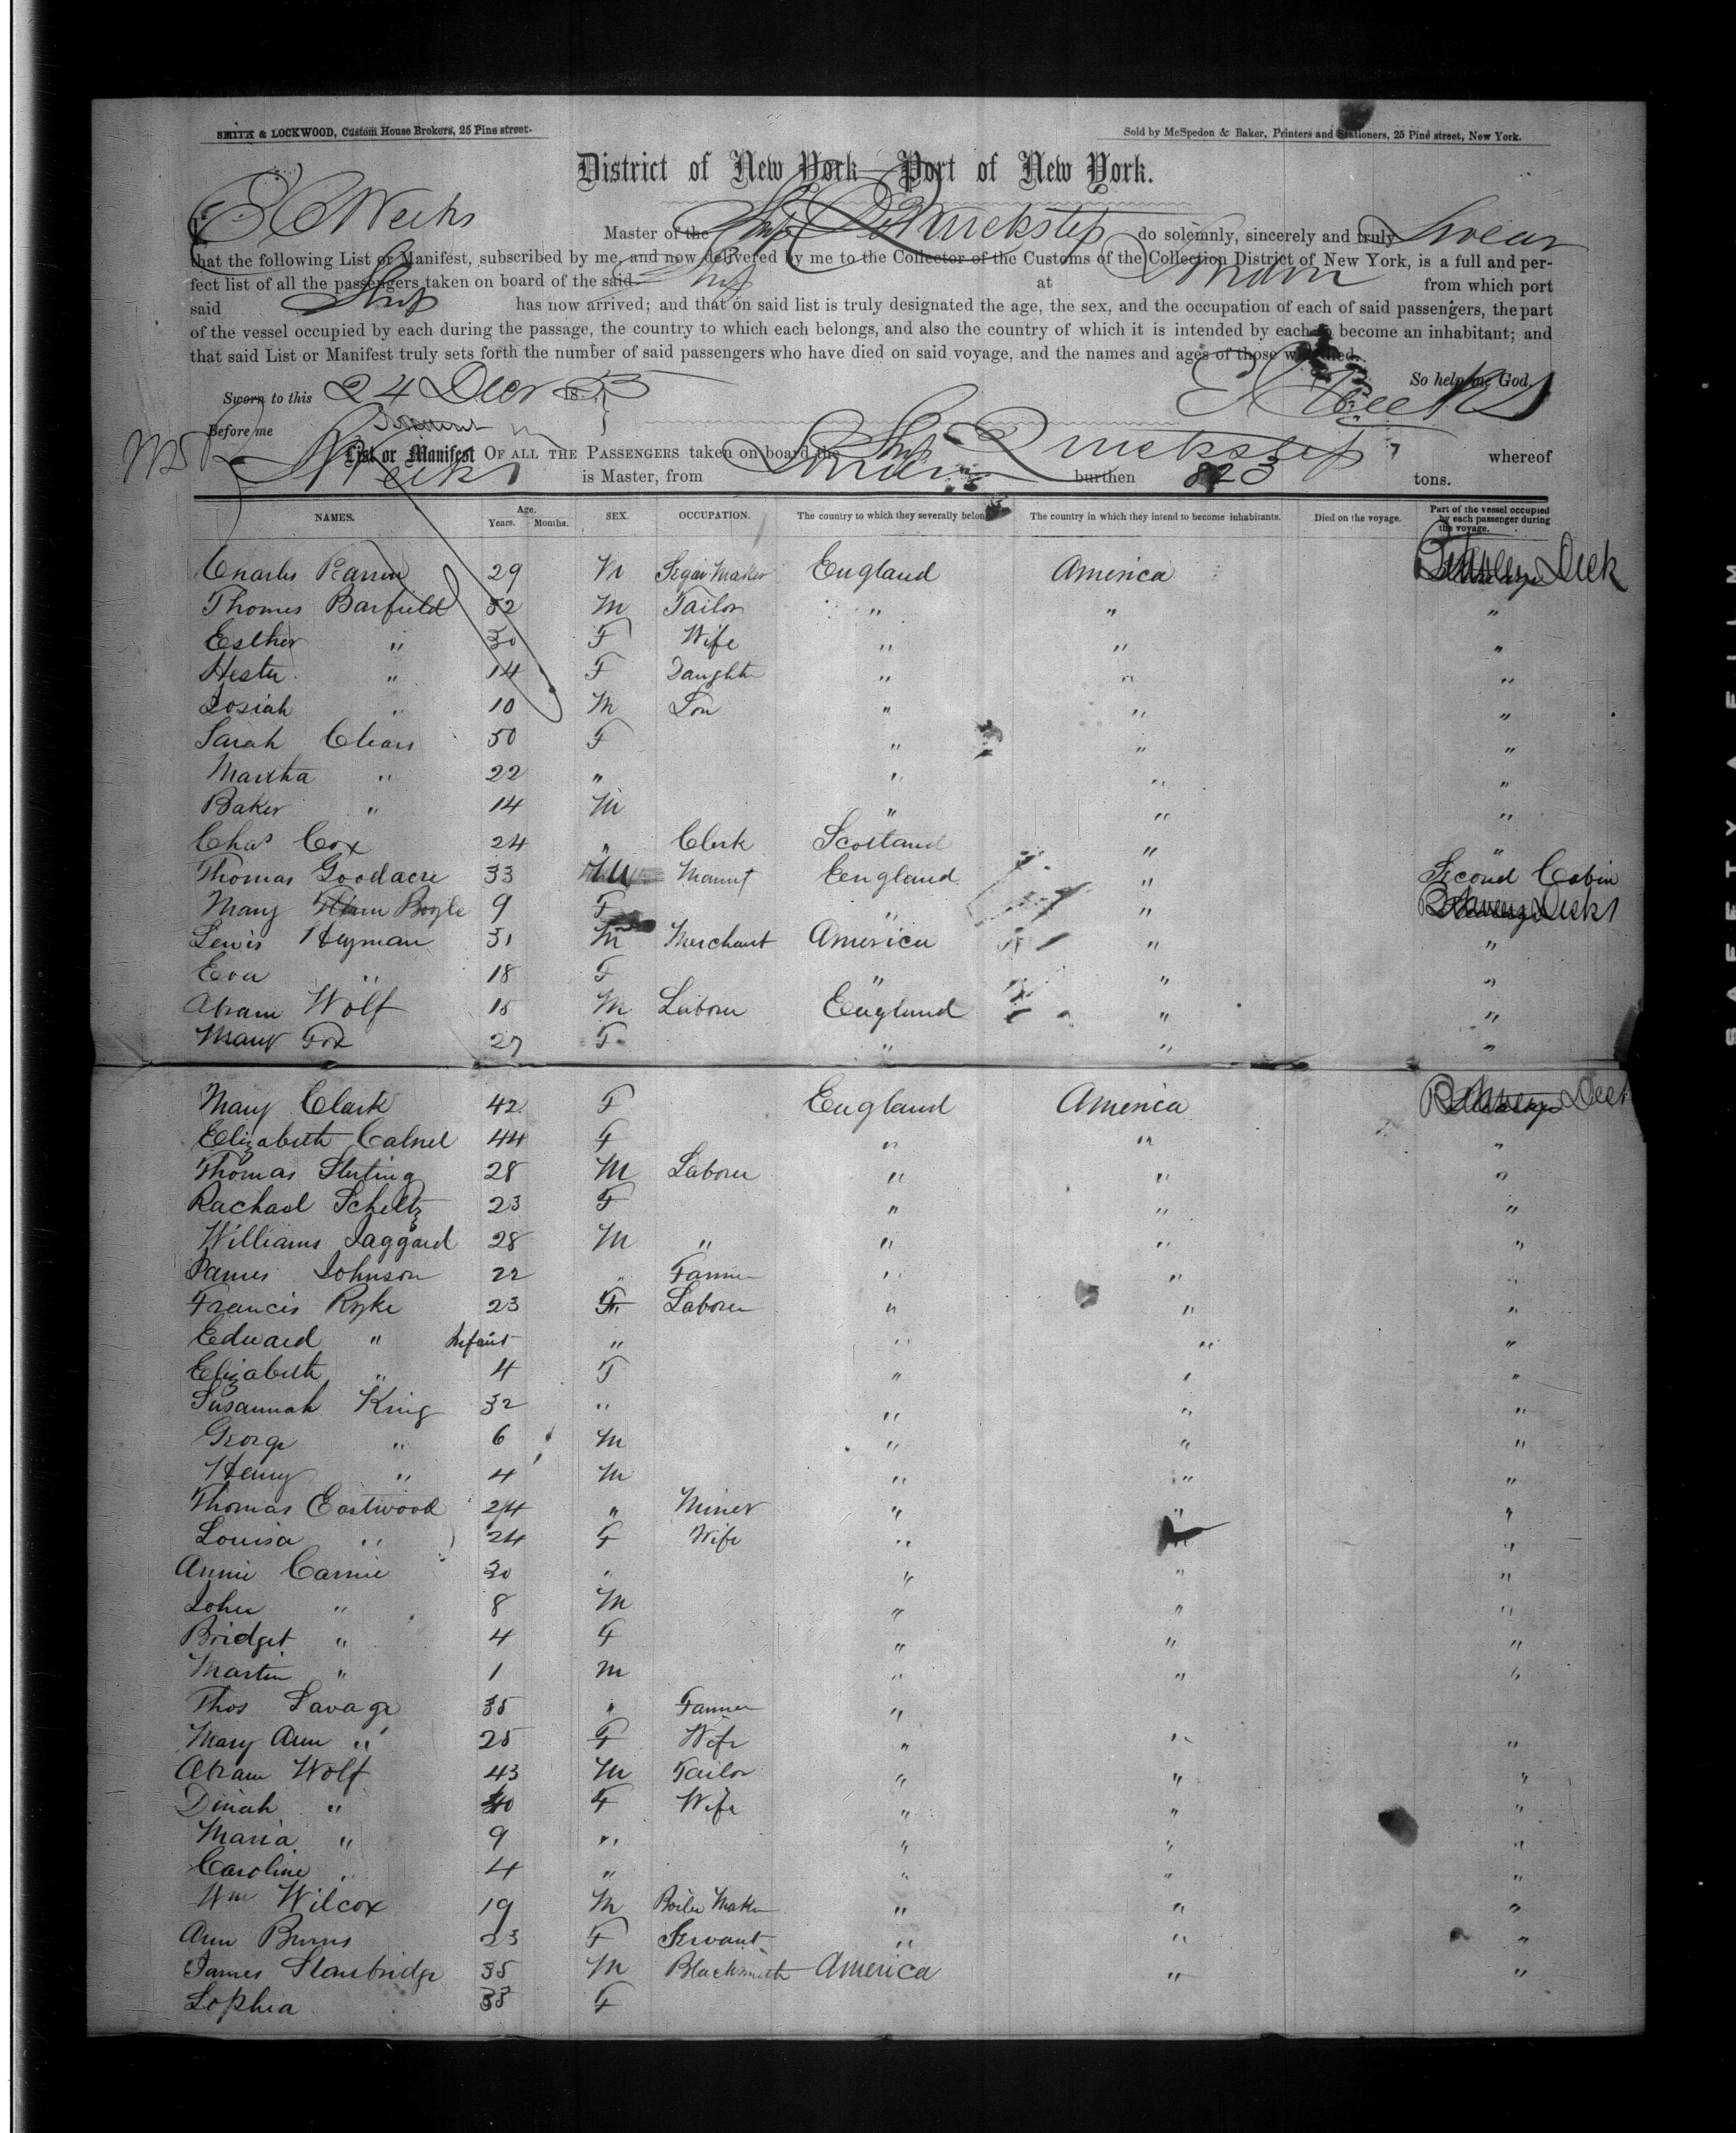 SMITH & LOCKWOOD, Custom House Brokers, 25 Pine street.
Sold by McSpedon & Baker, Printers and Stationers, 25 Pine street, New York.
District of New York—Port of New York.
I, E C Weeks Master of the Ship Quickstep do solemnly, sincerely and truly Swear
that the following List or Manifest, subscribed by me, and now delivered by me to the Collector of the Customs of the Collection District of New York, is a full and per-
fect list of all the passengers taken on board of the said Ship at London from which port
said Ship has now arrived; and that on said list is truly designated the age, the sex, and the occupation of each of said passengers, the part
of the vessel occupied by each during the passage, the country to which each belongs, and also the country of which it is intended by each to become an inhabitant; and
that said List or Manifest truly sets forth the number of said passengers who have died on said voyage, and the names and ages of those who died.
So help me God.
Sworn to this 24 Decr 1853 E C Weeks
Before me
List or Manifest OF ALL THE PASSENGERS taken on board the Ship Quickstep whereof
Weeks is Master, from London burthen 823 tons.
NAMES. Age. Years. Months. SEX. OCCUPATION. The country to which they severally belong. The country in which they intend to become inhabitants. Died on the voyage. Part of the vessel occupied by each passenger during the voyage.
Charles 29 M Segar Maker England America Deck
Thomas Barfield 32 M Tailor " " "
Esther " 30 F Wife " " "
Hester " 14 F Daughter " " "
Josiah " 10 M Son " " "
Sarah Chears 50 F " " "
Martha " 22 " " " "
Baker " 14 M " " "
Chas Cox 24 " Clerk Scotland " "
Thomas Goodacre 33 M England " Second Cabin
Mary Boyle 9 F " " Deck
Lewis Heyman 31 M Merchant America " "
Eva " 18 F " " "
Abram Wolf 15 M Laborer England " "
Mary Fox 27 F " " "
Mary Clark 42 F England America Deck
Elizabeth Calnel 44 F " " "
Thomas Sterling 28 M Laborer " " "
Rachael Scheltz 23 F " " "
Williams Jaggard 28 M " " " "
James Johnson 22 " Farmer " " "
Francis Ryke 23 Laborer " " "
Edward " Infant " " " "
Elizabeth " 4 F " " "
Susannah King 32 " " " "
George " 6 M " " "
Henry " 4 M " " "
Thomas Eastwood 24 " Miner " " "
Louisa " 24 F Wife " " "
Annie Carnie 30 " " " "
John " 8 M " " "
Bridget " 4 F " " "
Martin " 1 M " " "
Thos Savage 35 " Farmer "
Mary Ann " 25 F Wife " " "
Abram Wolf 43 M Tailor " " "
Dinah " 40 F Wife " " "
Maria " 9 " " " "
Caroline " 4 " " " "
Wm Wilcox 19 M Boiler Maker " " "
Ann Burns 23 F Servant " " "
James Stanbridge 35 M Blacksmith America " "
Sophia 33 F